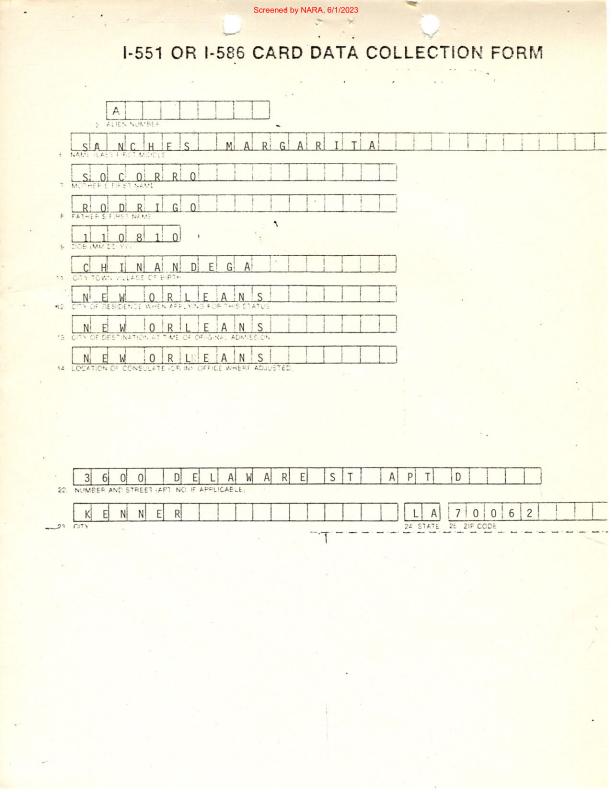 Screened by NARA, 6/1/2023
I-551 OR I-586 CARD DATA COLLECTION FORM
A
5. ALIEN NUMBER
SANCHES MARGARITA
6. NAME (LAST, FIRST, MIDDLE)
SOCORRO
7. MOTHER'S FIRST NAME
RODRIGO
8. FATHER'S FIRST NAME
110810
9. DOB (MM/DD/YY)
CHINANDEGA
11. CITY/TOWN/VILLAGE OF BIRTH
NEW ORLEANS
12. CITY OF RESIDENCE WHEN APPLYING FOR THIS STATUS
NEW ORLEANS
13. CITY OF DESTINATION AT TIME OF ORIGINAL ADMISSION
NEW ORLEANS
14. LOCATION OF CONSULATE (OR INS OFFICE WHERE ADJUSTED)
3600 DELAWARE ST APT D
22. NUMBER AND STREET (APT. NO. IF APPLICABLE)
KENNER LA 70062
23. CITY 24. STATE 25. ZIP CODE